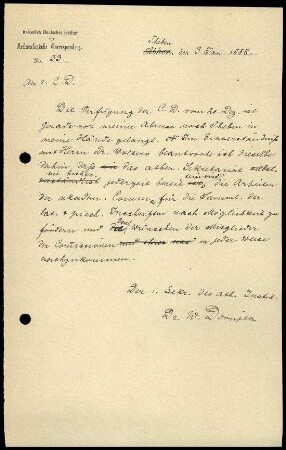 Kaiserlich Deutsches Institut
für
Archäologische Correspondenz.
No. 33.
Theben
Athen, den 3 Jan. 1888.
An d. C. D.
Die Verfügung der C. D. vom 20. Dez. ist
gerade vor meiner Abreise nach Theben in
meine Hände gelangt. Im Einverständniss
mit Herrn Dr. Wolters beantworte ich dieselbe
dahin, daß das athen. Sekretariat
wie bisher jederzeit bereit sein wird, die Arbeiten
der akadem. Commiss. für die Samml. der
lat. u. griech. Inschriften nach Möglichkeit zu
fördern und den Wünschen der Mitglieder
der Commissionen in jeder Weise
nachzukommen.
Der 1. Sekr. des ath. Instit.
Dr. W. Dörpfeld